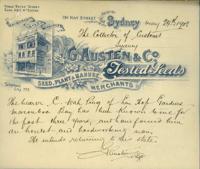 184 HAY STREET
Sydney
28th 1908
The Collector of Customs
Sydney
G. AUSTEN & CO
Tested Seeds
SEED, PLANT & MANURE
MERCHANTS
Telephone
The bearer C. Wah Ping of Sun Hop Gardens
Bay has been known to me for
the past three years, and have found him
an honest and hardworking man.
He intends returning to this state.